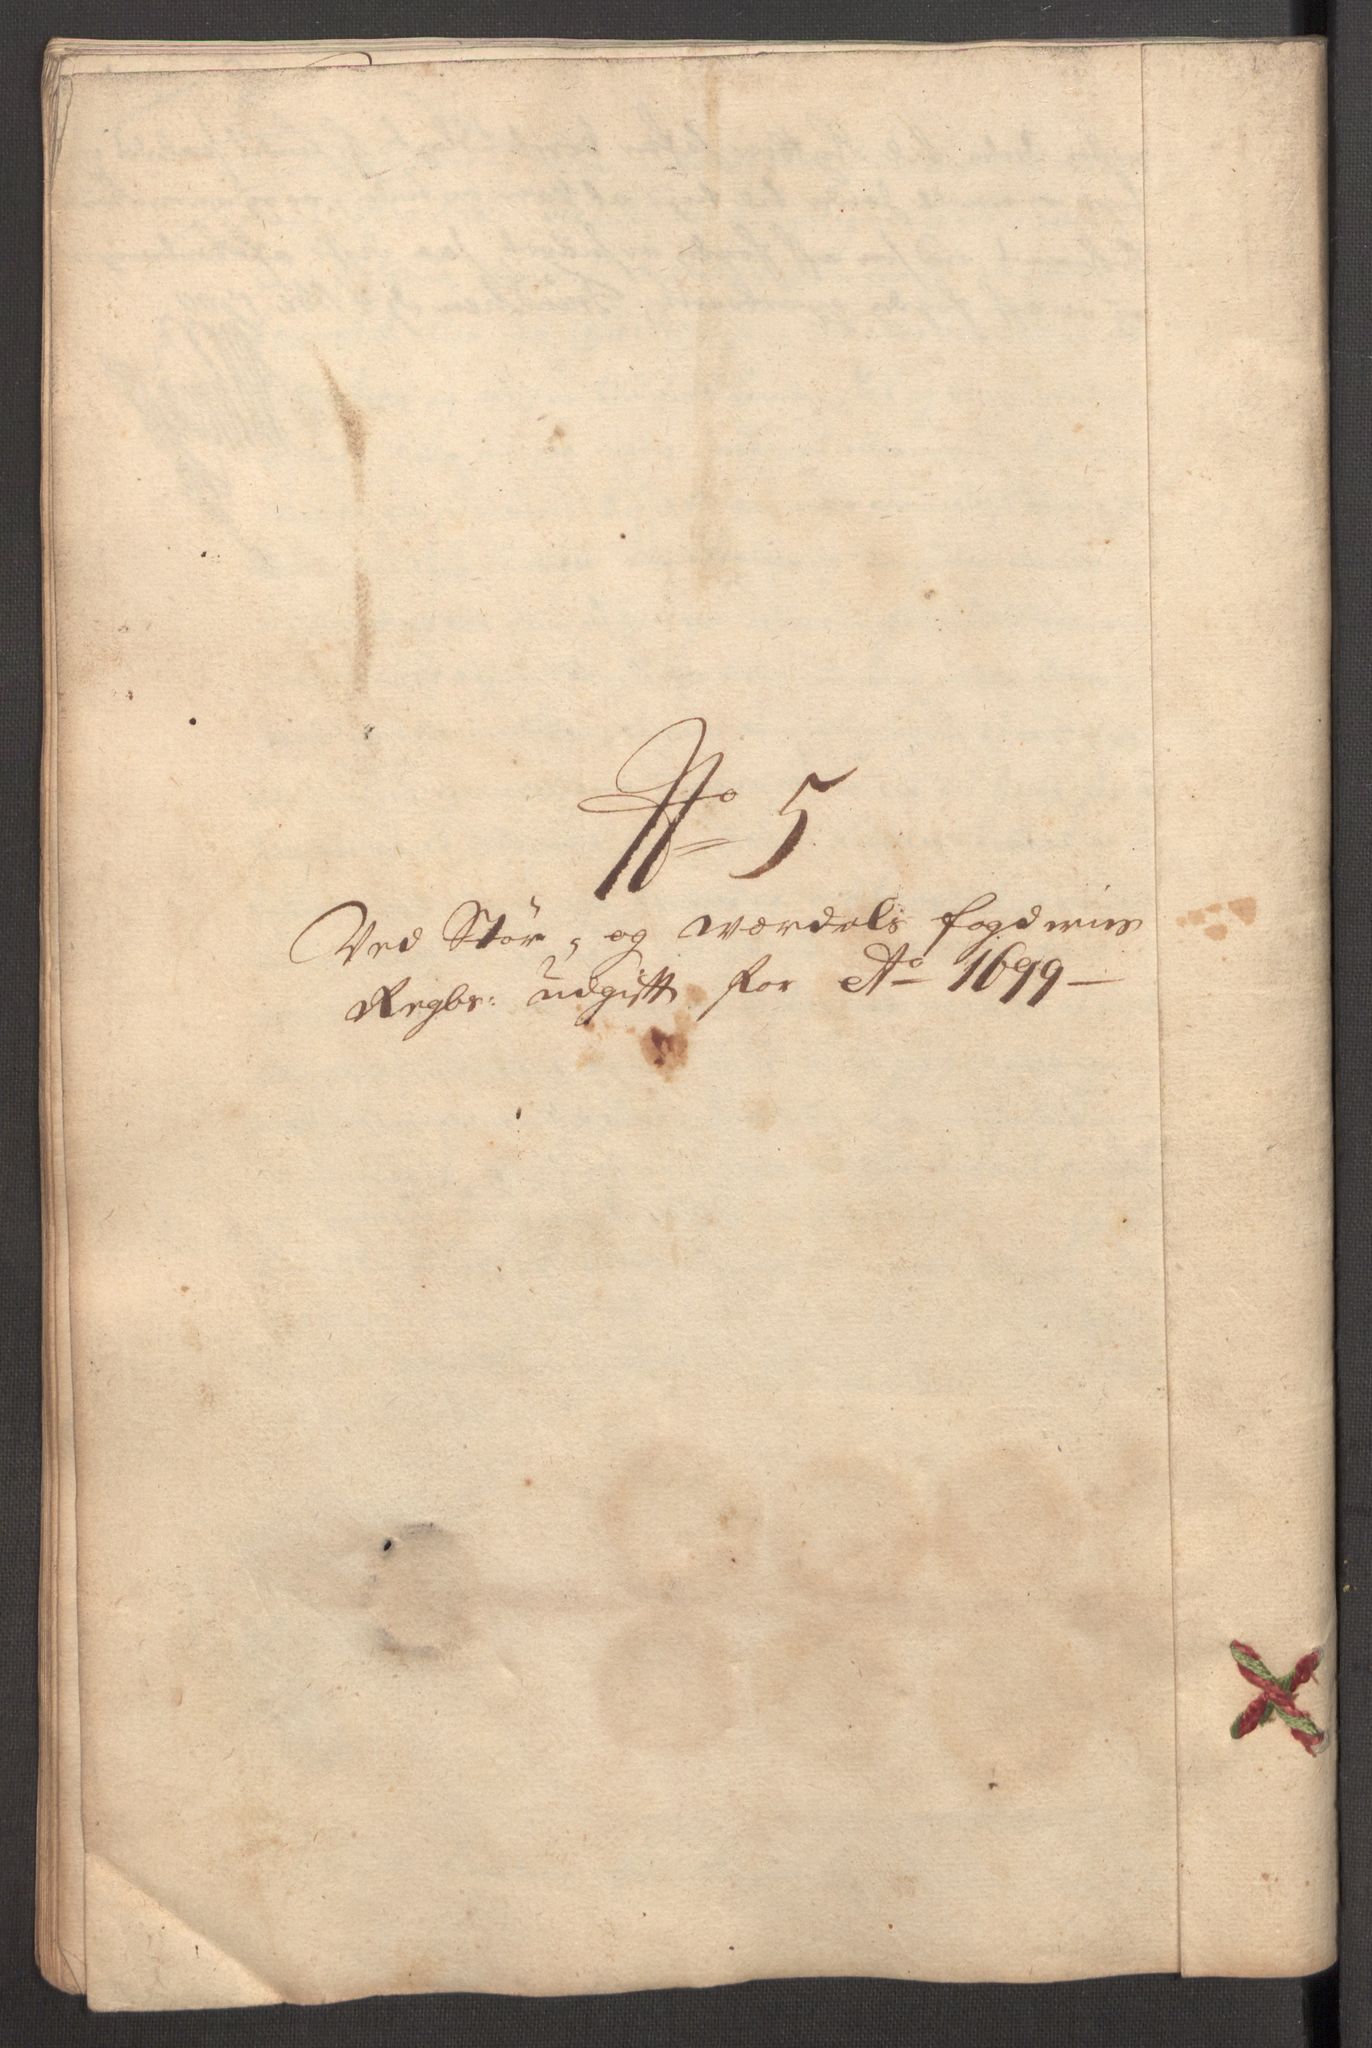 No 5
Ved Stør- og Værdals fogderies
Regbs: udgifft for Ao 1699